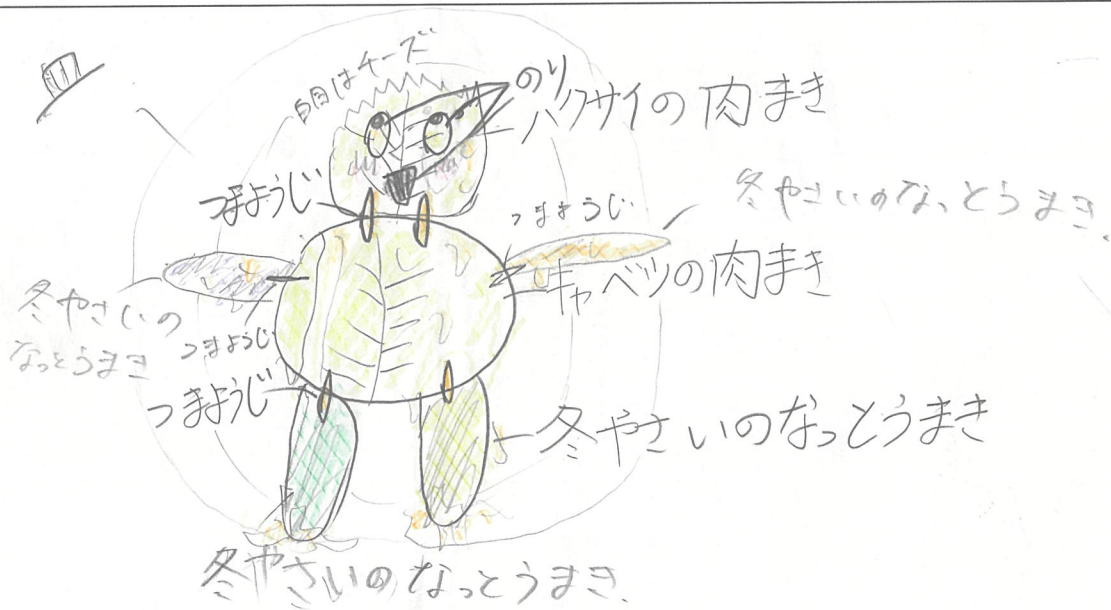 皿
白目はチーズ
のり
ハクサイの肉まき
つまようじ
つまようじ
冬やさいのなっとうまき
キャベツの肉まき
冬やさいの
なっとうまき
つまようじ
つまようじ
冬やさいのなっとうまき
冬やさいのなっとうまき